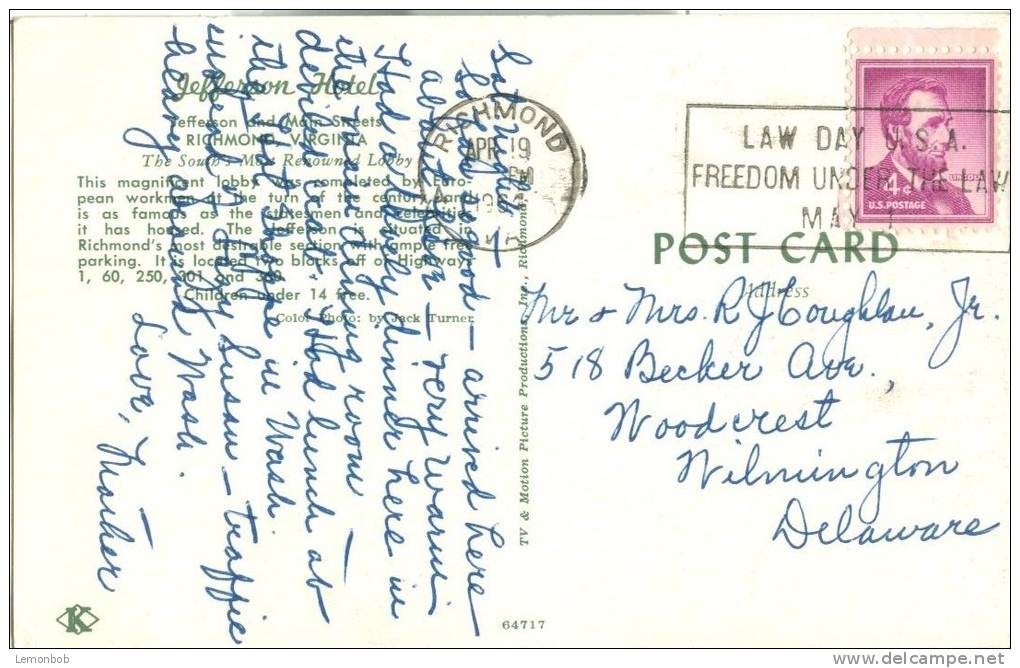 Jefferson Hotel
Jefferson and Main Streets
RICHMOND, VIRGINIA
The South's Most Renowned Lobby
This magnificent lobby was completed by Euro-
pean workmen at the turn of the century and
is as famous as the statesmen and celebrities
it has housed. The Jefferson is situated in
Richmond's most desirable section with ample free
parking. It is located two blocks off of Highways
1, 60, 250, 301 and 360.
Children under 14 free.
Color Photo: by Jack Turner
Sat. night
So far so good — arrived here
about — very warm
Had a lovely dinner here in
the main dining room
deviled crab. Had lunch at
the Hot Shoppe in Wash.
instead of Lazy Susan — traffic
heavy around Wash.
Love,
Mother
TV & Motion Picture Productions, Inc., Richmond,
RICHMOND
APR 19
PM
VA
LAW DAY U.S.A.
FREEDOM UNDER THE LAW
MAY 1
LINCOLN
4¢
U.S. POSTAGE
POST CARD
Address
Mr & Mrs. R J Coughlan, Jr.
518 Becker Ave.,
Woodcrest
Wilmington
Delaware
K
64717
Lemonbob
www.delcampe.net